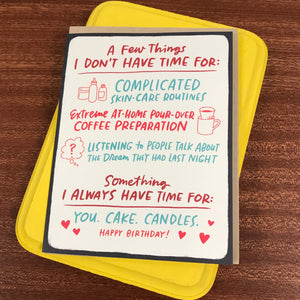 A Few Things
I DON'T HAVE TIME FOR:
COMPLICATED
SKIN-CARE ROUTINES
EXTREME AT-HOME POUR-OVER
COFFEE PREPARATION
?
LISTENING to PEOPLE TALK ABOUT
the DREAM THEY HAD LAST NIGHT
Something
I ALWAYS HAVE TIME FOR:
YOU. CAKE. CANDLES.
HAPPY BIRTHDAY!